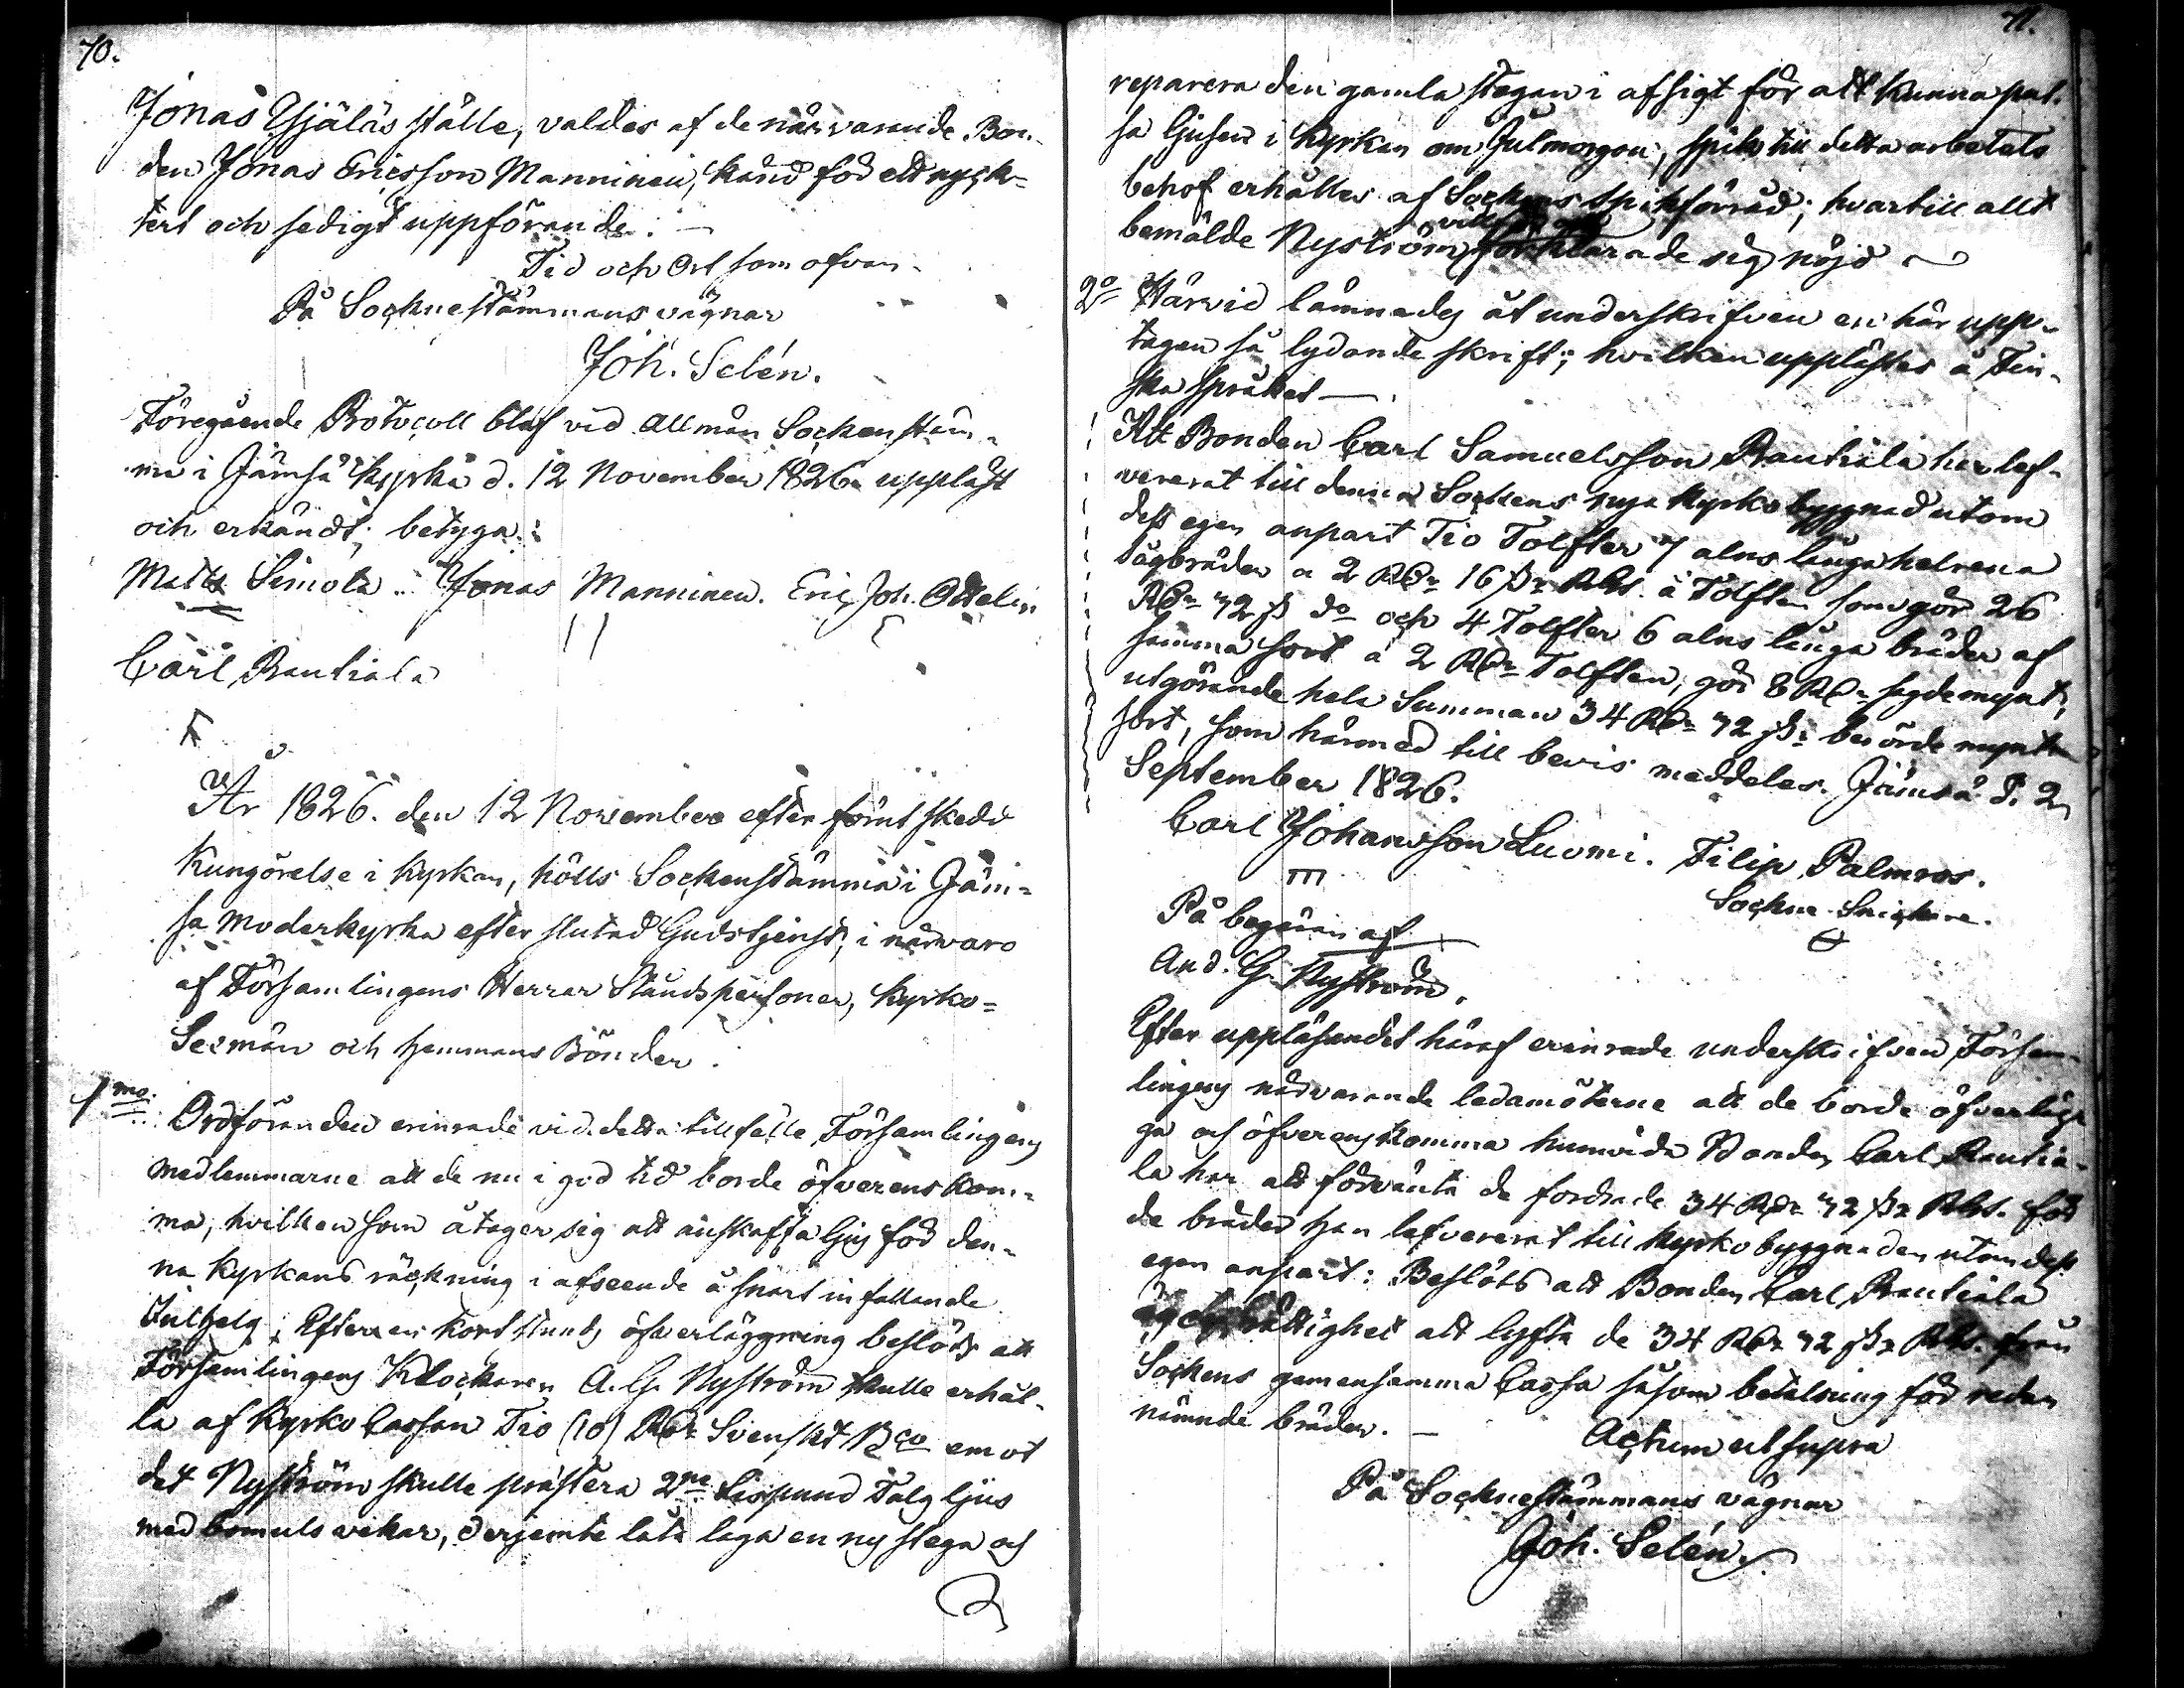 70.
Jonas Yjäläs ställe, valdes af de närvarande Bon-
den Jonas Ericsson Manninen, känd för ett nyck-
tert och sedigt uppförande. —
Tid och Ort som ofvan.
På Sochnestämmans vägnar
Joh. Selén.
Föregående Protocoll blef vid allmän Sockenstäm-
ma i Jämsä Kyrka d. 12 November 1826 uppläst
och erkändt; betyga:
Matts Simola. Jonas Manninen. Eric Joh. Ottelin
Carl Rautiala
År 1826. den 12 November efter förut skedd
Kungörelse i Kyrkan, hölls Sockenstämma i Jäm-
sä Moderkyrka efter slutad Gudstjenst, i närvaro
af Församlingens Herrar Ståndspersoner, Kyrko-
Sexmän och Hemmans Bönder.
1mo. Ordföranden erinrade vid detta tillfälle Församlingens
medlemmarne att de nu i god tid borde öfverenskom-
ma, hvilken som åtager sig att anskaffa ljus för den-
na Kyrkans räckning i afseende å snart infallande
Julhelg; Efter en kort stunds öfverläggning beslöts att
Församlingens Klockaren A. G. Nyström skulle erhål-
la af Kyrko Cassan Tio (10) Rdr Svenskt Bco emot
det Nyström skulle prästera 2ne Lispund Talgljus
med bomuls vekar, derjemte låta laga en ny stega och
71.
reparera den gamla stegan i afsigt för att kunna pas-
sa ljusen i Kyrkan om Julmorgon; spik till detta arbetets
behof erhålles af Sockens spikförråd; hvartill allt
bemälde Nyström förklarade sig nöjd
2o Härvid lämnades åt underskrifven en här upp-
tagen så lydande skrift; hvilken upplästes å Fin-
ska språket —.
Att Bonden Carl Samuelsson Rautiala har lef-
vererat till denna Sockens nya Kyrkobyggnad utom
dess egen anpart Tio Tolfter 7 alns långa helrena
sågbräder a 2 Rdr 16 sk Rgs. a Tolften som gör 26
Rdr 32 sk do och 4 Tolfter 6 alns långa bräder af
samma sort a 2 Rdr Tolften, gör 8 Rdr sagde mynt,
utgörande hela Summan 34 Rdr 32 sk berörde mynt
sort, som härmed till bevis meddeles. Jämsä d. 2
September 1826.
Carl Johansson Luomi. Filip Palmros.
Sochne Snickare.
På begäran af
And. G. Nyström.
Efter uppläsandet häraf erinrade underskrifven Försam-
lingens närvarande ledamöterne att de borde öfverläg-
ga och öfverenskomma huruvida Bonden Carl Rautia-
la har att förvänta de fordrade 34 Rdr 32 sk Rgs. för
de bräder han lefvererat till Kyrkobyggnaden utom dess
egen anpart: Beslöts att Bonden Carl Rautiala
rättighet att lyfta de 34 Rdr 32 sk Rgs. från
Sockens gemensamma Cassa såsom betalning för redan
nämnde bräder. —
Actum ut supra
På Sochnestämmans vägnar
Joh. Selén.